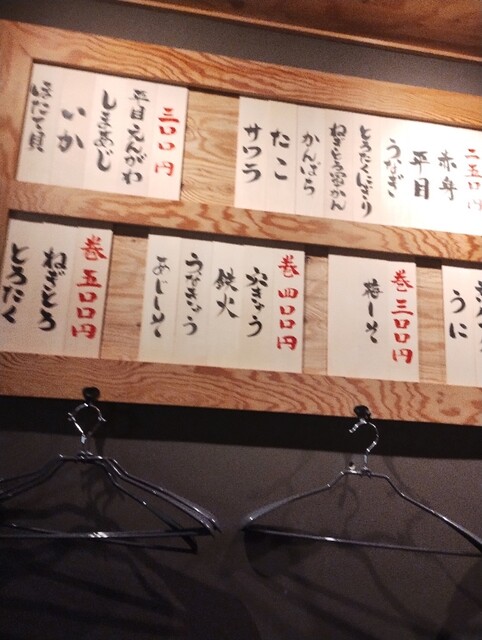 二五〇円
赤身
平目
うなぎ
とろたくにぎり
ねぎとろ軍かん
かんぱち
たこ
サワラ
三〇〇円
平目えんがわ
しまあじ
いか
ほたて貝
うに
巻 三〇〇円
梅しそ
巻 四〇〇円
穴きゅう
鉄火
うなきゅう
あじしそ
巻 五〇〇円
ねぎとろ
とろたく